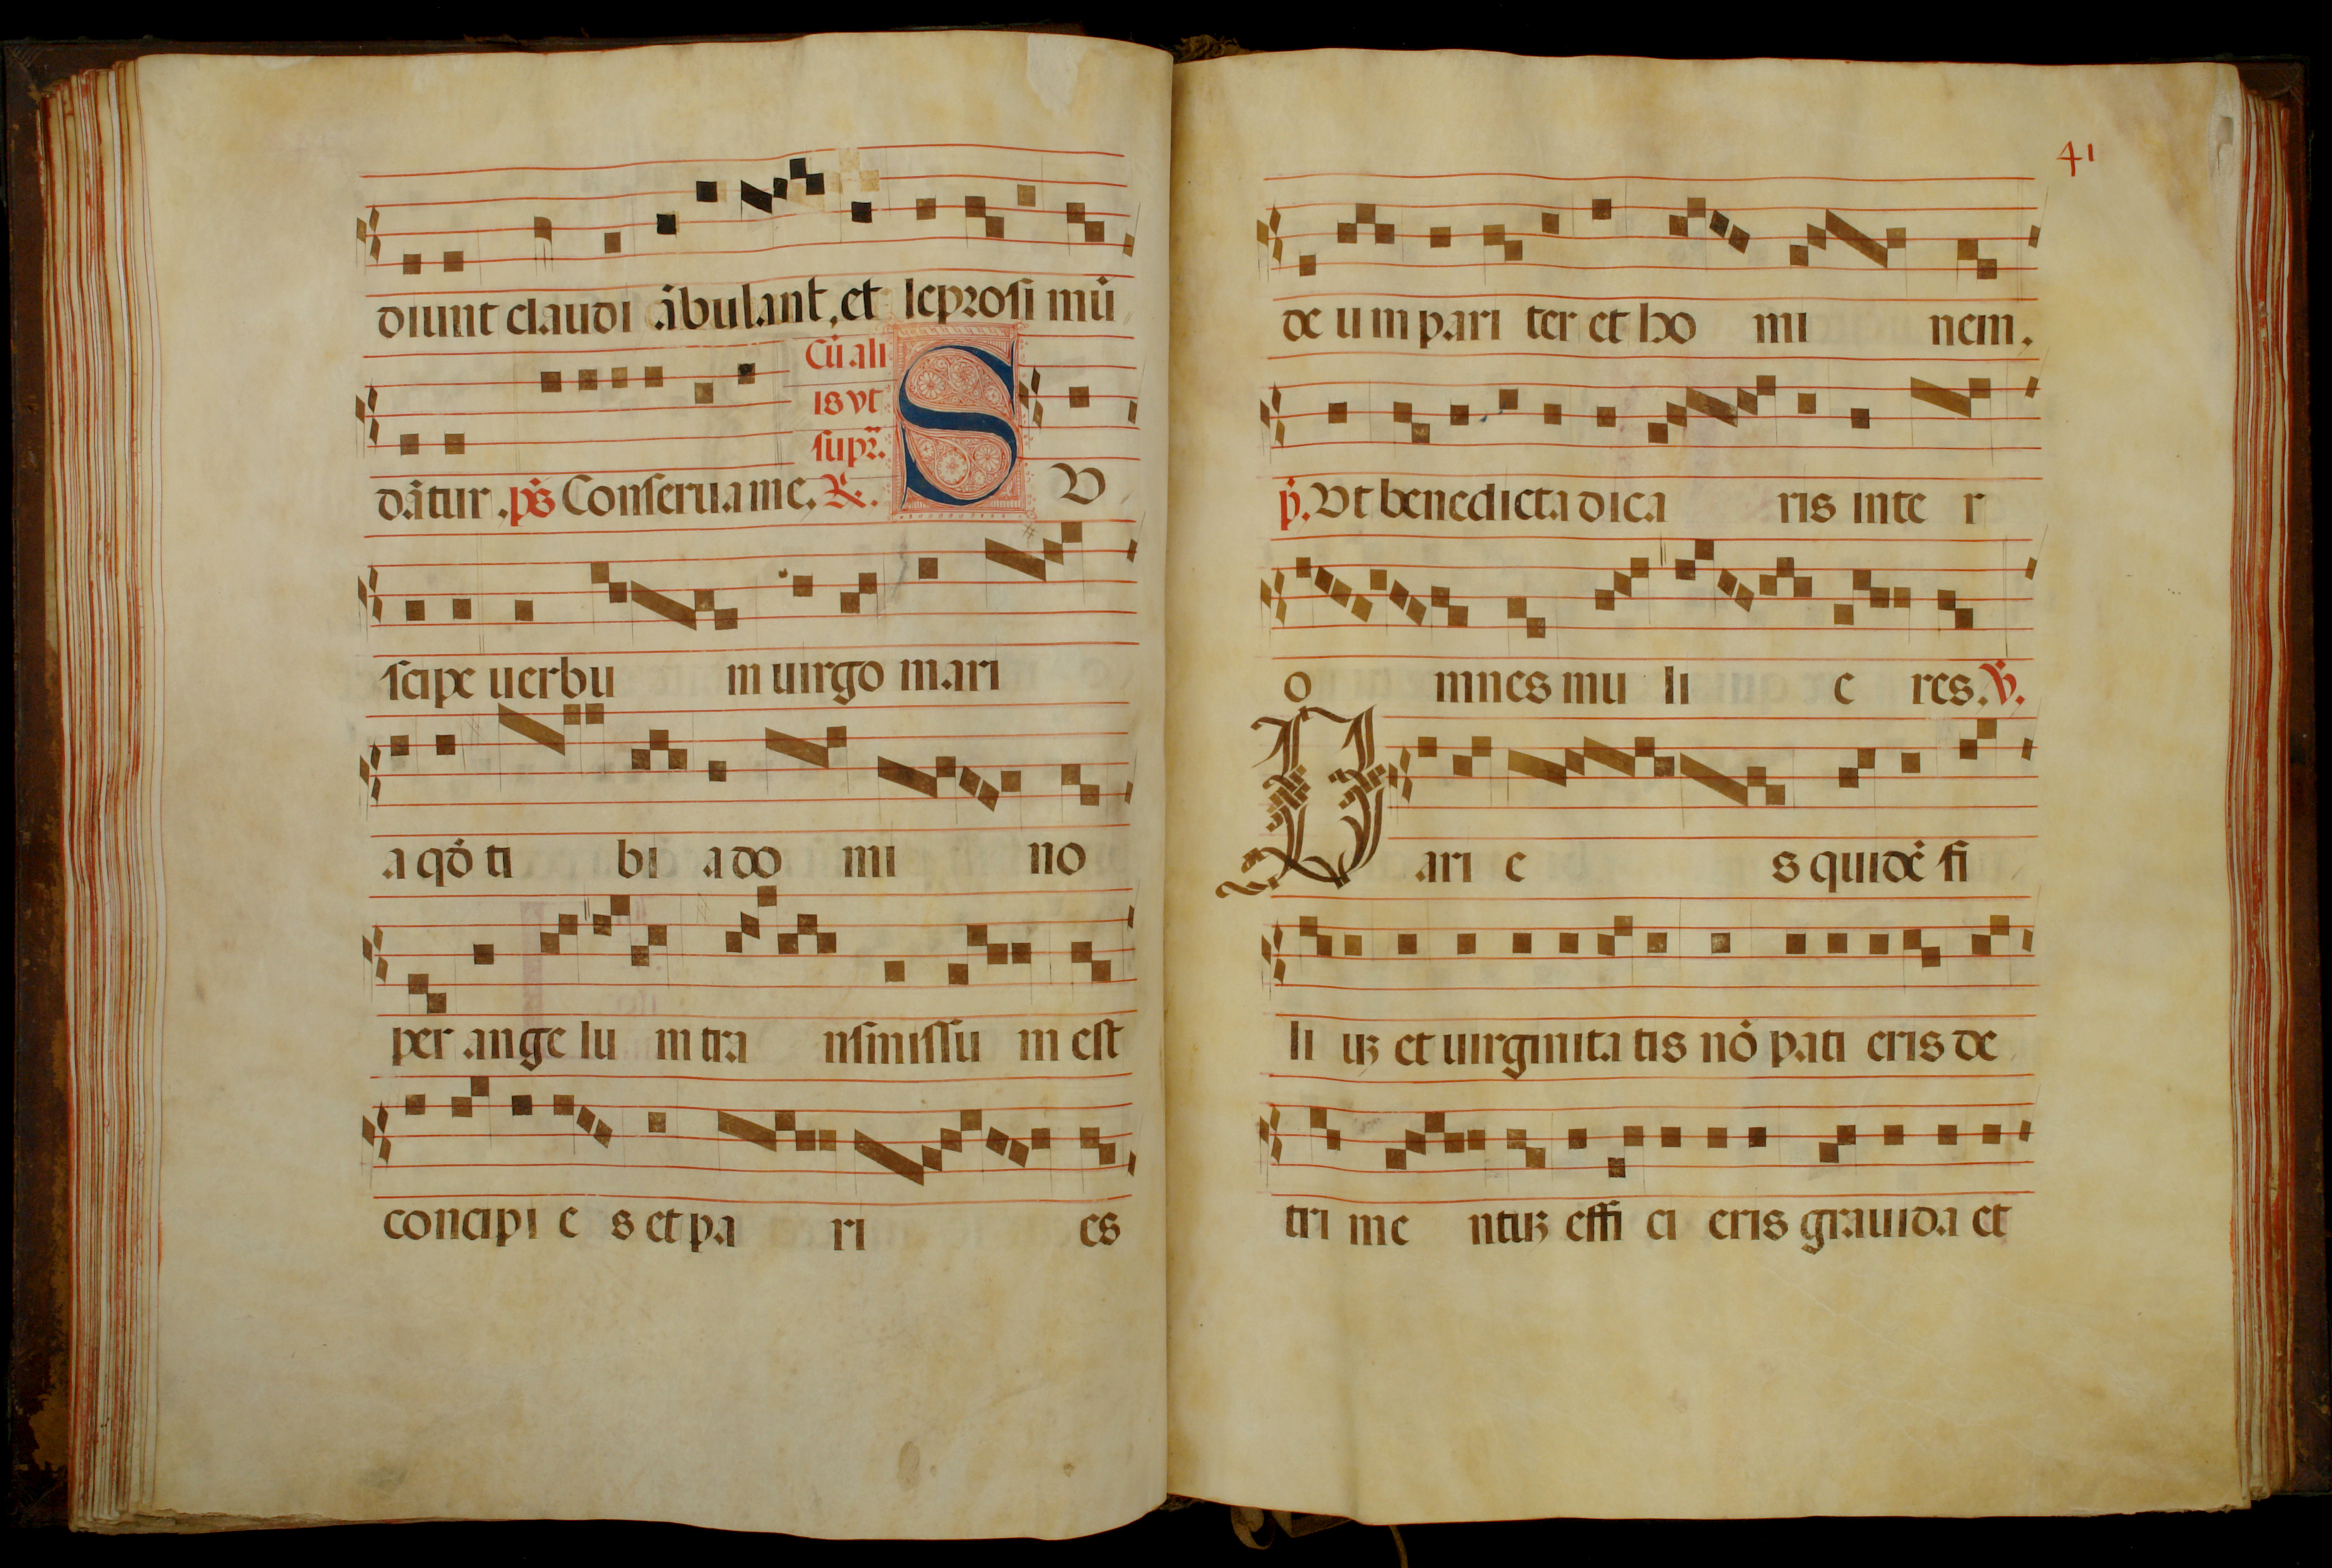 diunt claudi ãbulant, et leprosi mũ
Cũ ali
is vt
supr̃.
dãtur. ps̃ Conserua me. R. S U
scipe uerbu m uirgo mari
a qđ ti bi a do mi no
per ange lu m tra nsmissu m est
concipi e s et pa ri es
41
de u m pari ter et ho mi nem.
p̃. Ut benedicta dica ris inte r
o mnes mu li e res. V.
Pari e s quidẽ fi
li uʒ et uirginita tis nõ pati eris de
tri me ntuʒ effi ci eris grauida et